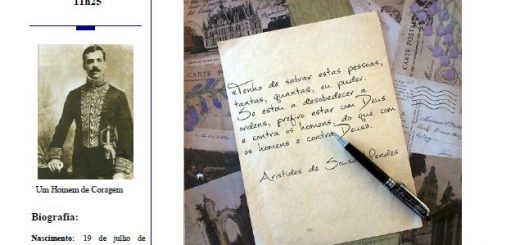 11h25
Um Homem de Coragem
Biografia:
Nascimento: 19 de julho de
«Tenho de salvar estas pessoas,
tantas, quantas, eu puder.
Se estou a desobedecer a
ordens, prefiro estar com Deus
e contra os homens, do que com
os homens e contra Deus».
Aristides de Sousa Mendes
CARTE POSTALE
CARTE POST